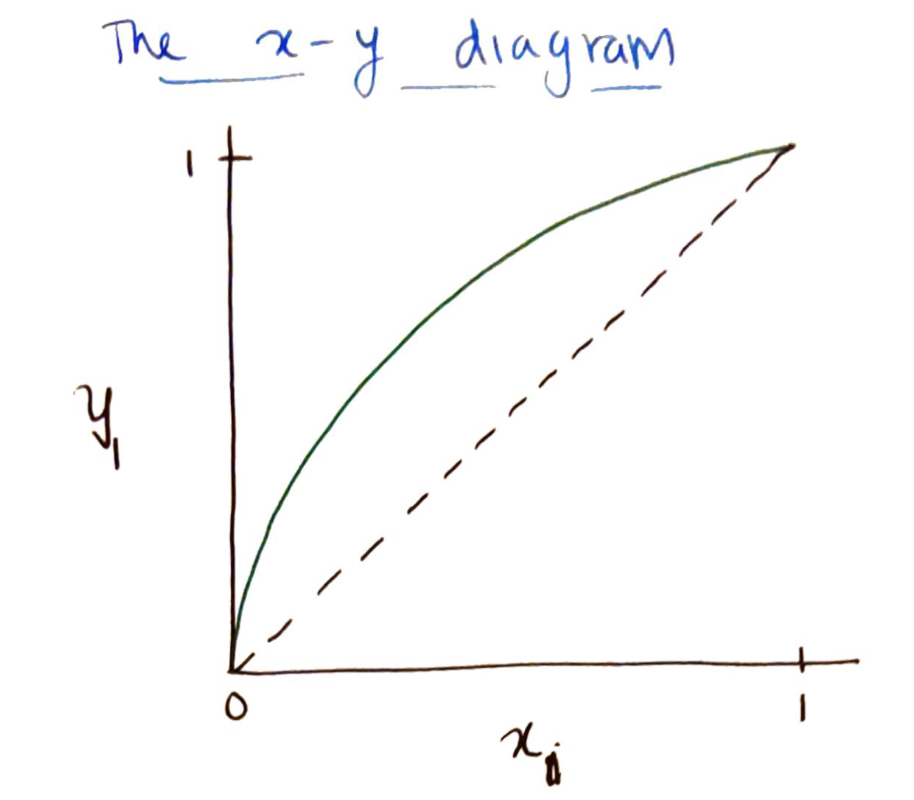 The x-y diagram
1
y₁
0
1
x₁